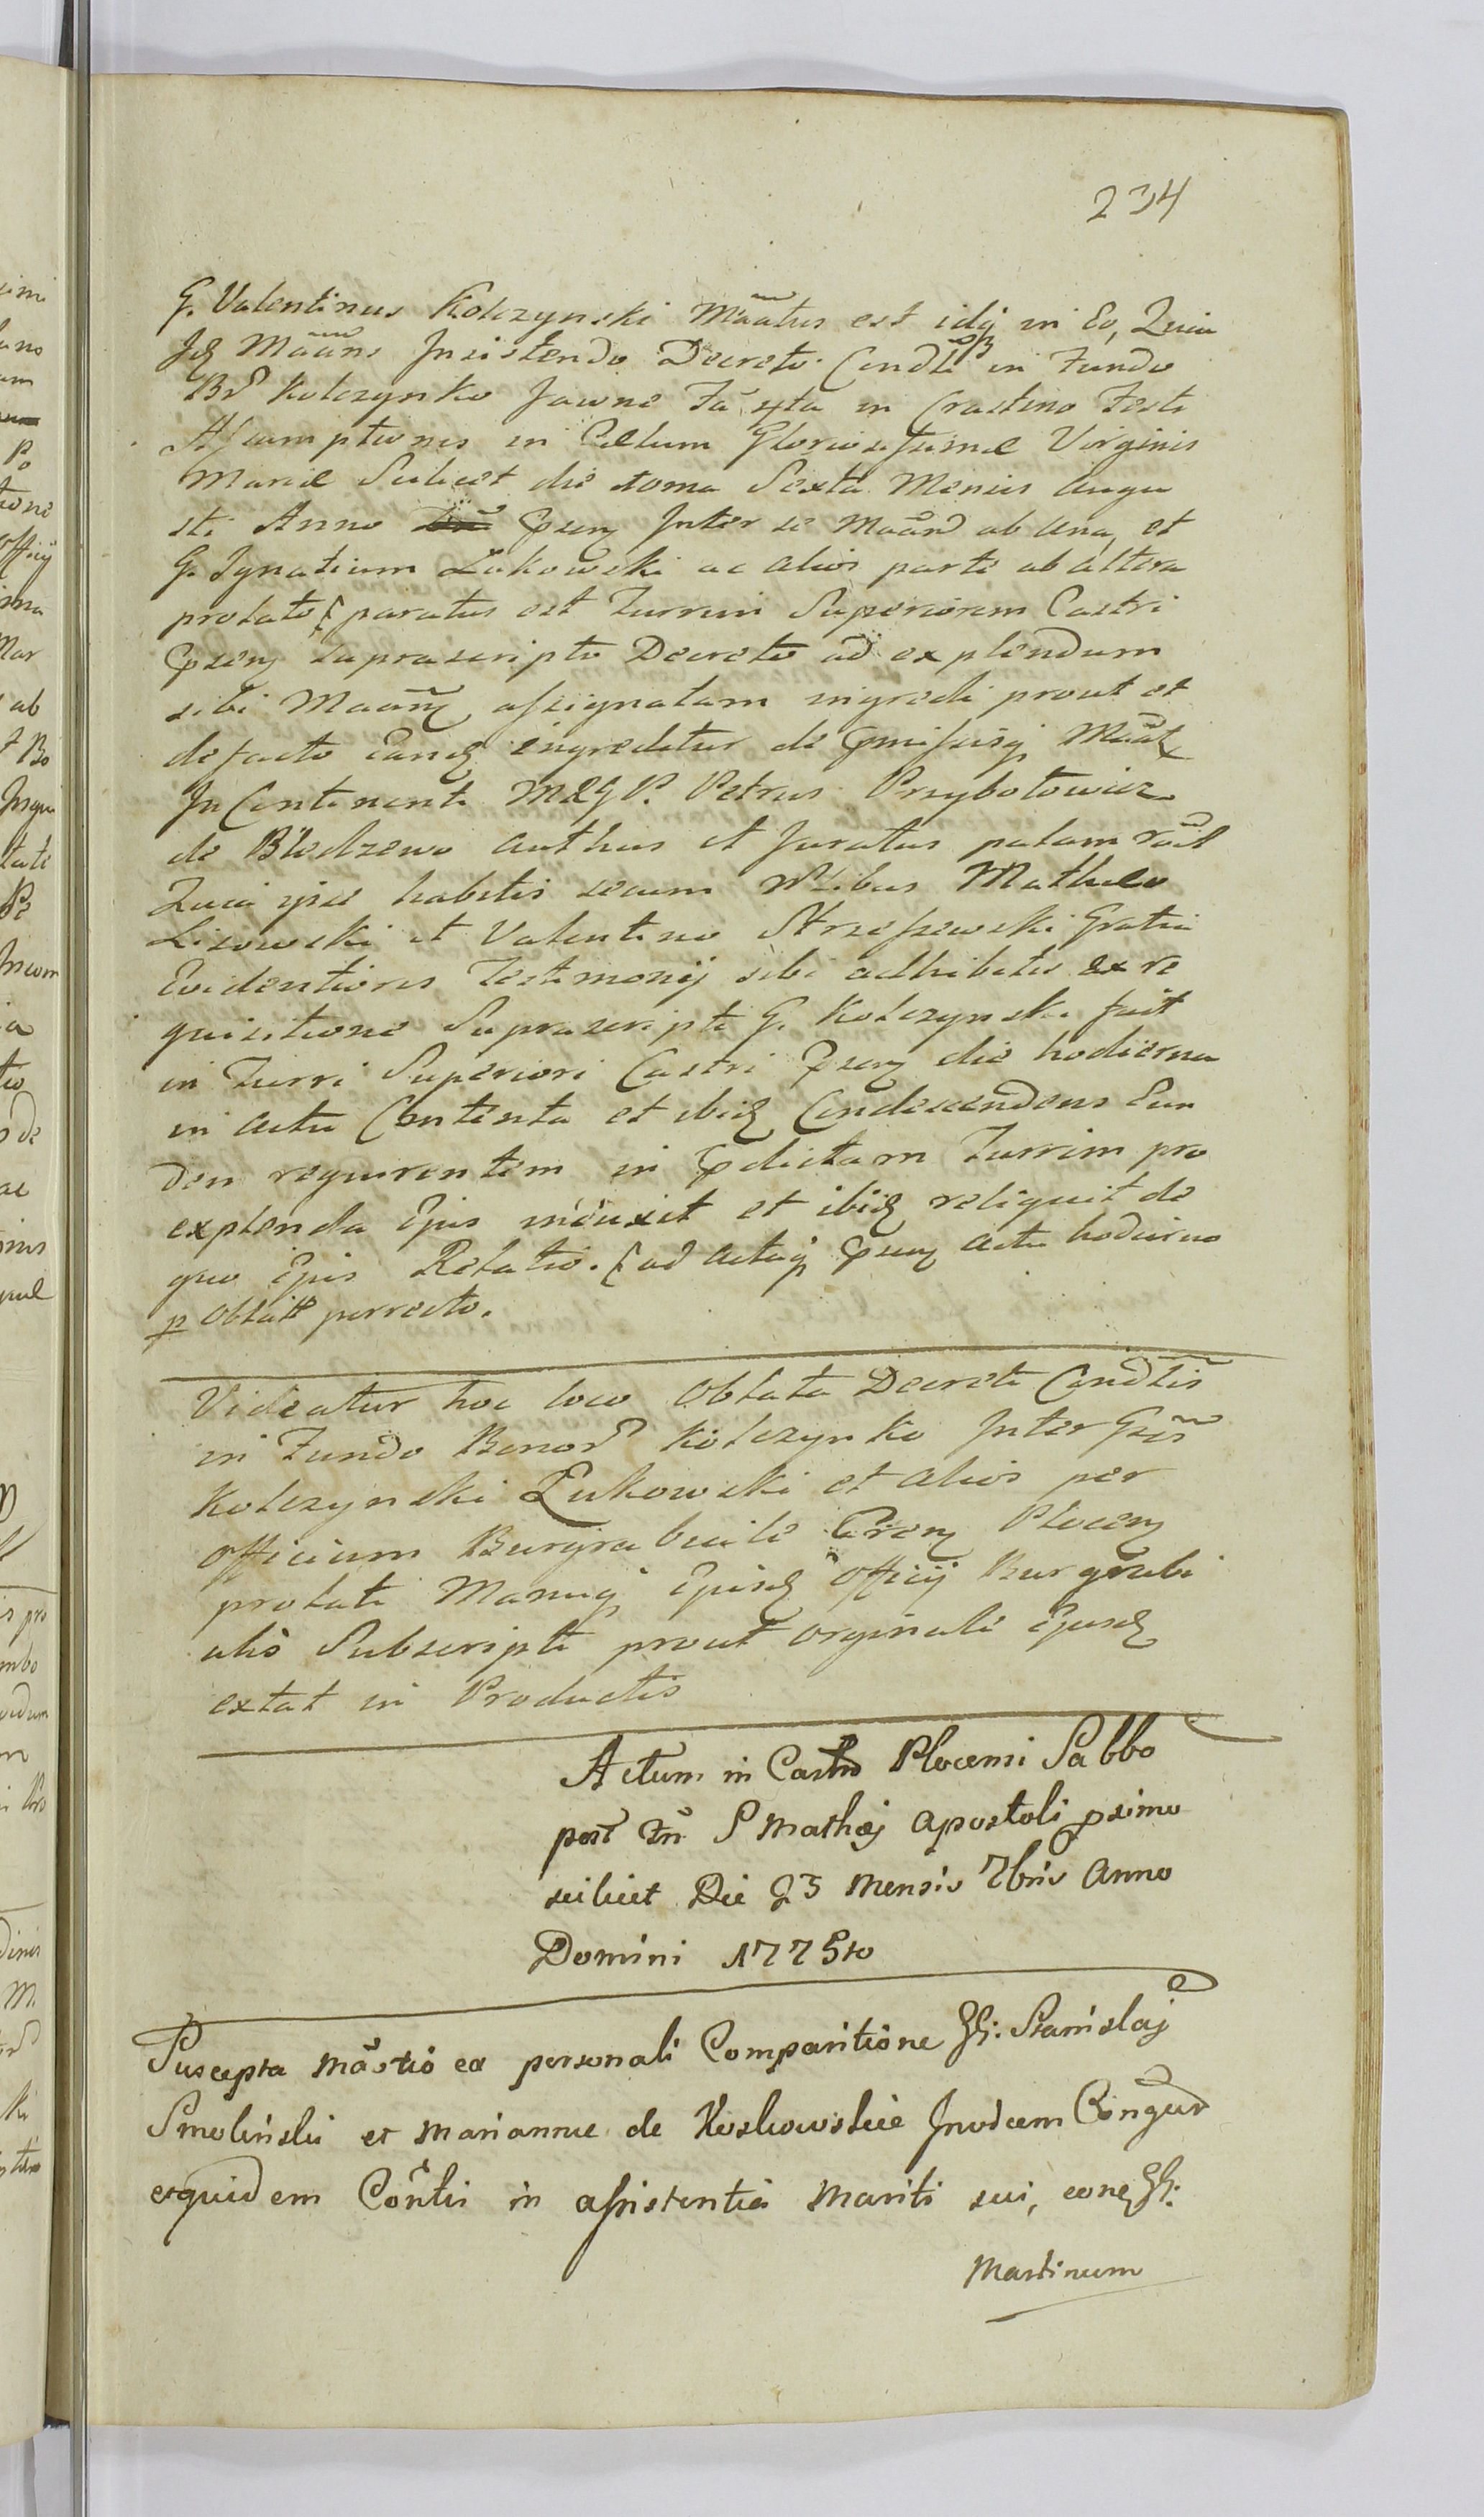 234
G. Valentinus Kolczynski Mãatus est idq in Eo, Quia
Jd Mãans Jnsistendo Decreto Condli in Fundo
Br Kolczynko Jawne Fa yta in Crastino Festi
Assumptionis in Cælum Gloriosissimæ Virginis
Mariæ Scilicet die xoma Sexta Mensis Augu
sti Anno pseny Jnter se Maand ab una, et
G. Jgnatium Lukowski ac alios parte ab altera
prolato paratus est Turrim Superiorem Castri
pseny suprascripto Decreto ad explendum
sibi Maanz assignatam ingredi prout et
defacto eand ingreditur de pmissisq Maat
Jn Continenti M&G P. Petrus Przybotowicz
de Bledzewo authus et Juratus palam roit
Quia ipse habitis secum Nlibus Matheo
Lisowski et Valentino Strzeszewski Gratia
Evidentioris Testimonij sibi adhibitis ex re
quisitione Suprascripti G. Kolczynski fuit
in Turri Superiori Castri pseny die hodierna
in actu Contenta et ibid Condescendens Eun
dem requirentem in pdictam Turrim pro
explenda Ejus induxit et ibid reliquit de
quo Ejus Relatio. ad actaq pseny actu hodierno
p Oblatt perrecto.
Videatur hoc loco Oblata Decreti Condlis
in Fundo Bonor Kolczynko Jnter Gsos
Kolczynski Lukowski et alios per
Officium Burgrabiale Cren Plocen
prolati Manuq Ejusd Officij Burgrabi
alis Subscripti prout orginale Ejusd
extat in Productis
Actum in Castro Plocensi Sabbo
post Fm S Mathæj Apostoli pximo
scilicet Die 23 Mensis 7bris Anno
Domini 1775to
Suscepta mãstio ex personali Comparitione G: Stanislaj
Smolinski et Mariannæ de Koskowskie Jnvicem Conjgũm
etquidem Cõntis in assistentia Mariti sui, cone G:
Martinum